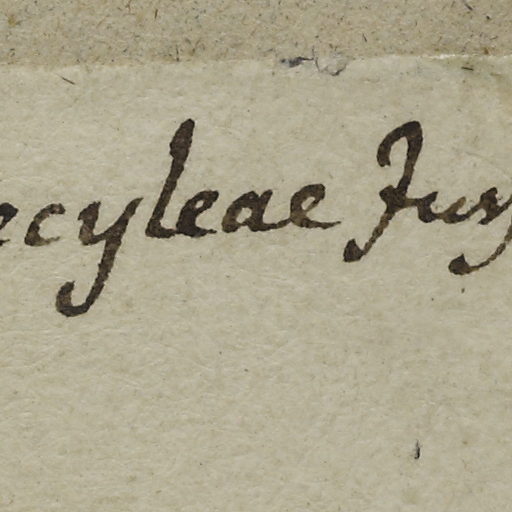 ecyleae Jus